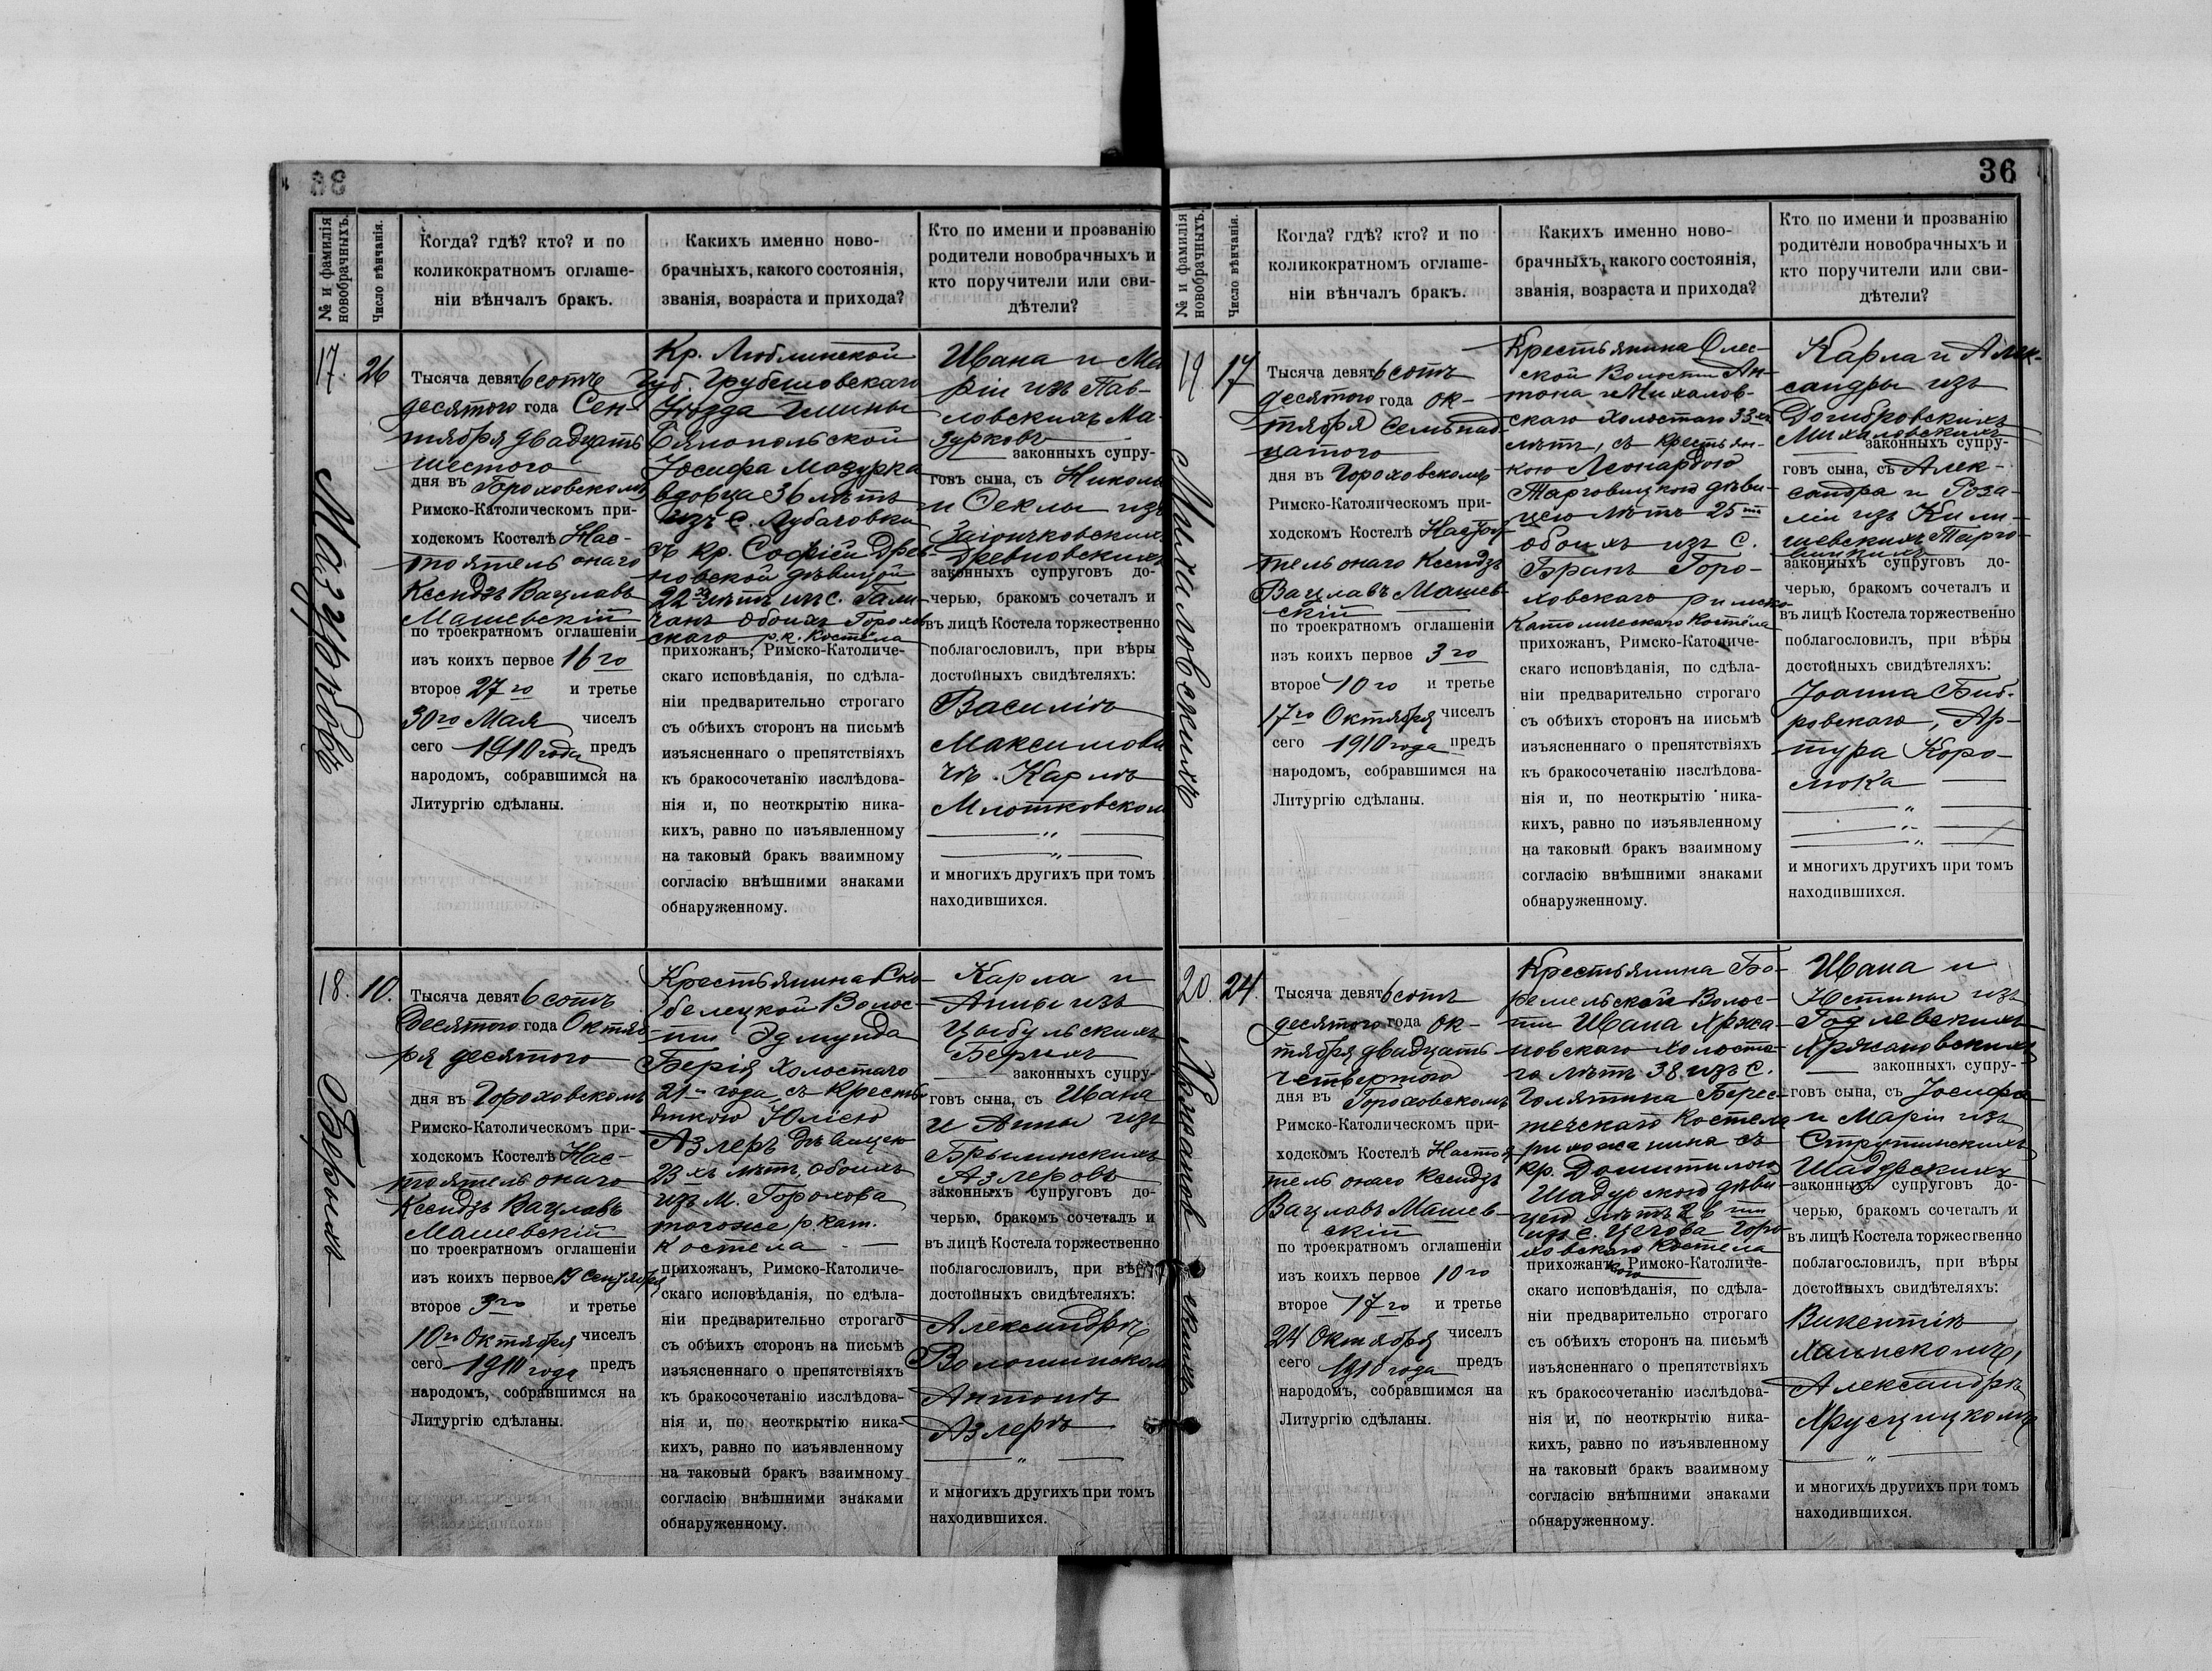 36
№ и фамилія новобрачныхъ.
Число вѣнчанія.
Когда? гдѣ? кто? и по
коликократномъ оглаше-
ніи вѣнчалъ бракъ.
Какихъ именно ново-
брачныхъ, какого состоянія,
званія, возраста и прихода?
Кто по имени и прозванію
родители новобрачныхъ и
кто поручители или сви-
дѣтели?
17.
Мазурковъ
26
Тысяча девятьсотъ
десятого года Сен-
тября двадцать
шестого
дня въ Гороховскомъ
Римско-Католическомъ при-
ходскомъ Костелѣ Нас-
тоятель онаго
Ксендзъ Вацлавъ
Машевскій
по троекратномъ оглашеніи
изъ коихъ первое 16го
второе 27го и третье
30го Мая чиселъ
сего 1910 года предъ
народомъ, собравшимся на
Литургію сдѣланы.
Кр. Люблинской
Губ. Грубешовскаго
Уѣзда Гмины
Бялопольской
Іосифа Мазурка
вдовца 36 лѣтъ
изъ с. Лубачовки
съ кр. Софіей Древ-
новской дѣвицой
22 лѣтъ изъ с. Гали-
чанъ обоихъ Горохов-
скаго р.к. Костёла
прихожанъ, Римско-Католиче-
скаго исповѣданія, по сдѣла-
ніи предварительно строгаго
съ обѣихъ сторонъ на письмѣ
изъясненнаго о препятствіяхъ
къ бракосочетанію изслѣдова-
нія и, по неоткрытію ника-
кихъ, равно по изъявленному
на таковый бракъ взаимному
согласію внѣшними знаками
обнаруженному.
Ивана и Ма
ріи изъ Пав-
ловскихъ Ма-
зурковъ
законныхъ супру-
говъ сына, съ Николая
и Ѳеклы изъ
Заіончковскихъ
Древновскихъ
законныхъ супруговъ до-
черью, бракомъ сочеталъ и
въ лицѣ Костела торжественно
поблагословилъ, при вѣры
достойныхъ свидѣтеляхъ:
Василіѣ
Максимови
чѣ. Карлѣ
Млотковском
и многихъ другихъ при томъ
находившихся.
18.
Берихъ
10.
Тысяча девятьсотъ
десятого года Октяб-
ря десятого
дня въ Гороховскомъ
Римско-Католическомъ при-
ходскомъ Костелѣ Нас-
тоятель онаго
Ксендзъ Вацлавъ
Машевскій
по троекратномъ оглашеніи
изъ коихъ первое 19 Сентября
второе 3го и третье
10го Октября чиселъ
сего 1910 года предъ
народомъ, собравшимся на
Литургію сдѣланы.
Крестьянина Ско-
белецкой Волос-
ти Эдмунда
Берія холостаго
21 года, съ кресть-
янкою Юліею
Азлеръ дѣвицею
23хъ лѣтъ, обоихъ
изъ м. Горохова
тогоже р. кат.
Костела
прихожанъ, Римско-Католиче-
скаго исповѣданія, по сдѣла-
ніи предварительно строгаго
съ обѣихъ сторонъ на письмѣ
изъясненнаго о препятствіяхъ
къ бракосочетанію изслѣдова-
нія и, по неоткрытію ника-
кихъ, равно по изъявленному
на таковый бракъ взаимному
согласію внѣшними знаками
обнаруженному.
Карла и
Анны изъ
Цыбульскихъ
Берихъ
законныхъ супру-
говъ сына, съ Ивана
и Анны изъ
Брылинскихъ
Азлеровъ
законныхъ супруговъ до-
черью, бракомъ сочеталъ и
въ лицѣ Костела торжественно
поблагословилъ, при вѣры
достойныхъ свидѣтеляхъ:
Александрѣ
Волошинском
Антонѣ
Азлерѣ
и многихъ другихъ при томъ
находившихся.
№ и фамилія новобрачныхъ.
Число вѣнчанія.
Когда? гдѣ? кто? и по
коликократномъ оглаше-
ніи вѣнчалъ бракъ.
Какихъ именно ново-
брачныхъ, какого состоянія,
званія, возраста и прихода?
Кто по имени и прозванію
родители новобрачныхъ и
кто поручители или сви-
дѣтели?
19.
Михаловскихъ
17
Тысяча девятьсотъ
десятого года Ок-
тября семьнад-
цатого
дня въ Гороховскомъ
Римско-Католическомъ при-
ходскомъ Костелѣ Настоя-
тель онаго Ксендзъ
Вацлавъ Машев-
скій
по троекратномъ оглашеніи
изъ коихъ первое 3го
второе 10го и третье
17го Октября чиселъ
сего 1910 года предъ
народомъ, собравшимся на
Литургію сдѣланы.
Крестьянина Олес-
ской Волости Ан-
тона Михалов-
скаго холостаго 33хъ
лѣтъ, съ крестьян-
кою Леонардою
Тарговицкою дѣви-
цею лѣтъ 25ти
обоихъ изъ с.
Бранъ Горо-
ховскаго римско
Католическаго Костёла
прихожанъ, Римско-Католиче-
скаго исповѣданія, по сдѣла-
ніи предварительно строгаго
съ обѣихъ сторонъ на письмѣ
изъясненнаго о препятствіяхъ
къ бракосочетанію изслѣдова-
нія и, по неоткрытію ника-
кихъ, равно по изъявленному
на таковый бракъ взаимному
согласію внѣшними знаками
обнаруженному.
Карла и Алек-
сандры изъ
Домбровскихъ
Михаловскихъ
законныхъ супру-
говъ сына, съ Алек-
сандра и Роза-
ліи изъ Кили-
шевскихъ Тарго-
вицкихъ
законныхъ супруговъ до-
черью, бракомъ сочеталъ и
въ лицѣ Костела торжественно
поблагословилъ, при вѣры
достойныхъ свидѣтеляхъ:
Іоанна Биб-
ровскаго, Ар-
тура Коро-
люка
и многихъ другихъ при томъ
находившихся.
20.
Хржановскихъ
24.
Тысяча девятьсотъ
десятого года Ок-
тября двадцать
четвертого
дня въ Гороховскомъ
Римско-Католическомъ при-
ходскомъ Костелѣ Настоя
тель онаго Ксендзъ
Вацлавъ Машев-
скій
по троекратномъ оглашеніи
изъ коихъ первое 10го
второе 17го и третье
24 Октября чиселъ
сего 1910 года предъ
народомъ, собравшимся на
Литургію сдѣланы.
Крестьянина Бо-
ремельской Волос-
ти Ивана Хржа-
новскаго холоста-
го лѣтъ 38 изъ с.
Голятина Берес-
течскаго Костела
рихожанина съ
кр. Домитилою
Шадурскою дѣви-
цею лѣтъ 26ти
изъ с. Цегова Горо-
ховскаго Костёла
прихожанкою Римско-Католиче-
скаго исповѣданія, по сдѣла-
ніи предварительно строгаго
съ обѣихъ сторонъ на письмѣ
изъясненнаго о препятствіяхъ
къ бракосочетанію изслѣдова-
нія и, по неоткрытію ника-
кихъ, равно по изъявленному
на таковый бракъ взаимному
согласію внѣшними знаками
обнаруженному.
Ивана и
Юстины изъ
Годлевскихъ
Хржановскихъ
законныхъ супру-
говъ сына, съ Іосифа
и Маріи изъ
Струтинскихъ
Шадурскихъ
законныхъ супруговъ до-
черью, бракомъ сочеталъ и
въ лицѣ Костела торжественно
поблагословилъ, при вѣры
достойныхъ свидѣтеляхъ:
Викентіѣ
Александрѣ
и многихъ другихъ при томъ
находившихся.